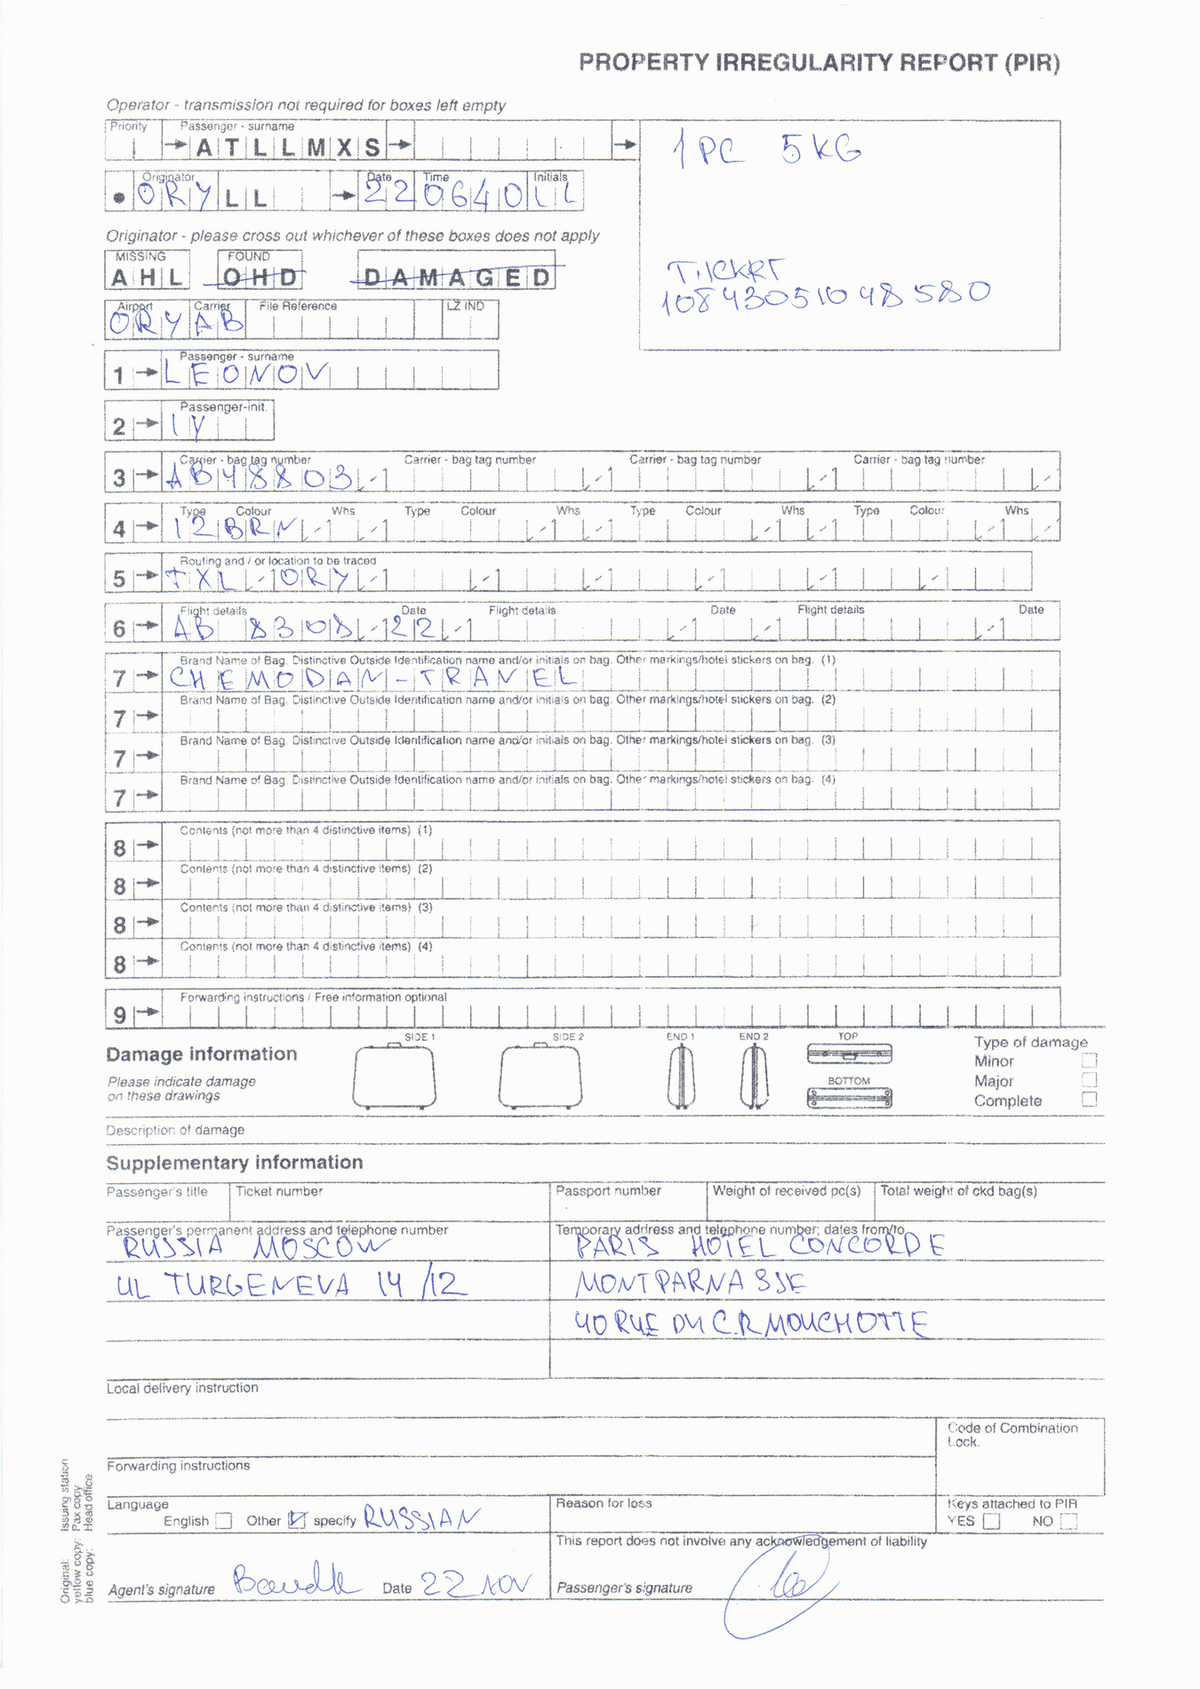 PROPERTY IRREGULARITY REPORT (PIR)
Operator - transmission not required for boxes left empty
Priority Passenger - surname
ATLLMXS
1 PC 5 KG
Originator Date Time Initials
ORY LL 220640 LL
Originator - please cross out whichever of these boxes does not apply
MISSING FOUND
AHL OHD DAMAGED
TICKET
Airport Carrier File Reference LZ IND
ORY AB
Passenger - surname
1 LEONOV
Passenger-init.
2 IV
Carrier - bag tag number Carrier - bag tag number Carrier - bag tag number Carrier - bag tag number
3 AB48803
Type Colour Whs Type Colour Whs Type Colour Whs Type Colour Whs
4 12BRN
Routing and / or location to be traced
5 TXL ORY
Flight details Date Flight details Date Flight details Date
6 AB 8308 22
Brand Name of Bag. Distinctive Outside Identification name and/or initials on bag. Other markings/hotel stickers on bag. (1)
7 CHEMODAN-TRAVEL
Brand Name of Bag. Distinctive Outside Identification name and/or initials on bag. Other markings/hotel stickers on bag. (2)
7
Brand Name of Bag. Distinctive Outside Identification name and/or initials on bag. Other markings/hotel stickers on bag. (3)
7
Brand Name of Bag. Distinctive Outside Identification name and/or initials on bag. Other markings/hotel stickers on bag. (4)
7
Contents (not more than 4 distinctive items) (1)
8
Contents (not more than 4 distinctive items) (2)
8
Contents (not more than 4 distinctive items) (3)
8
Contents (not more than 4 distinctive items) (4)
8
Forwarding instructions / Free information optional
9
SIDE 1 SIDE 2 END 1 END 2 TOP
Damage information
Type of damage
Minor
Please indicate damage BOTTOM Major
on these drawings
Complete
Description of damage
Supplementary information
Passenger's title Ticket number Passport number Weight of received pc(s) Total weight of ckd bag(s)
Passenger's permanent address and telephone number Temporary address and telephone number; dates from/to
RUSSIA MOSCOW PARIS HOTEL CONCORDE
UL TURGENEVA 14/12 MONTPARNASSE
40 RUE DU C.R MOUCHOTTE
Local delivery instruction
Code of Combination
Lock.
Forwarding instructions
Language Reason for loss Keys attached to PIR
English Other specify RUSSIAN YES NO
This report does not involve any acknowledgement of liability
Agent's signature Date 22 NOV Passenger's signature
Original: Issuing station
yellow copy: Pax copy
blue copy: Head office